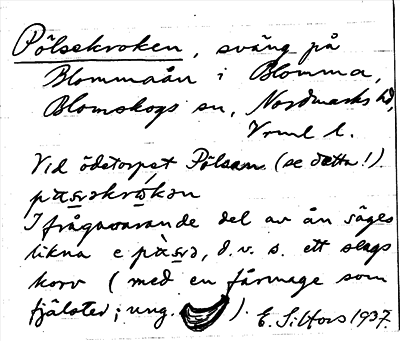 Pölsekroken, sväng på
Blommaån i Blomma,
Blomskogs sn, Nordmarks hd,
Vrml l.
Vid ödetorpet Pölsan (se detta!).
I frågavarande del av ån säges
likna e pæ̀sə, d.v.s. ett slags
korv (med en fårmage som
fjälster; ung. ).
E. Silfors 1937.